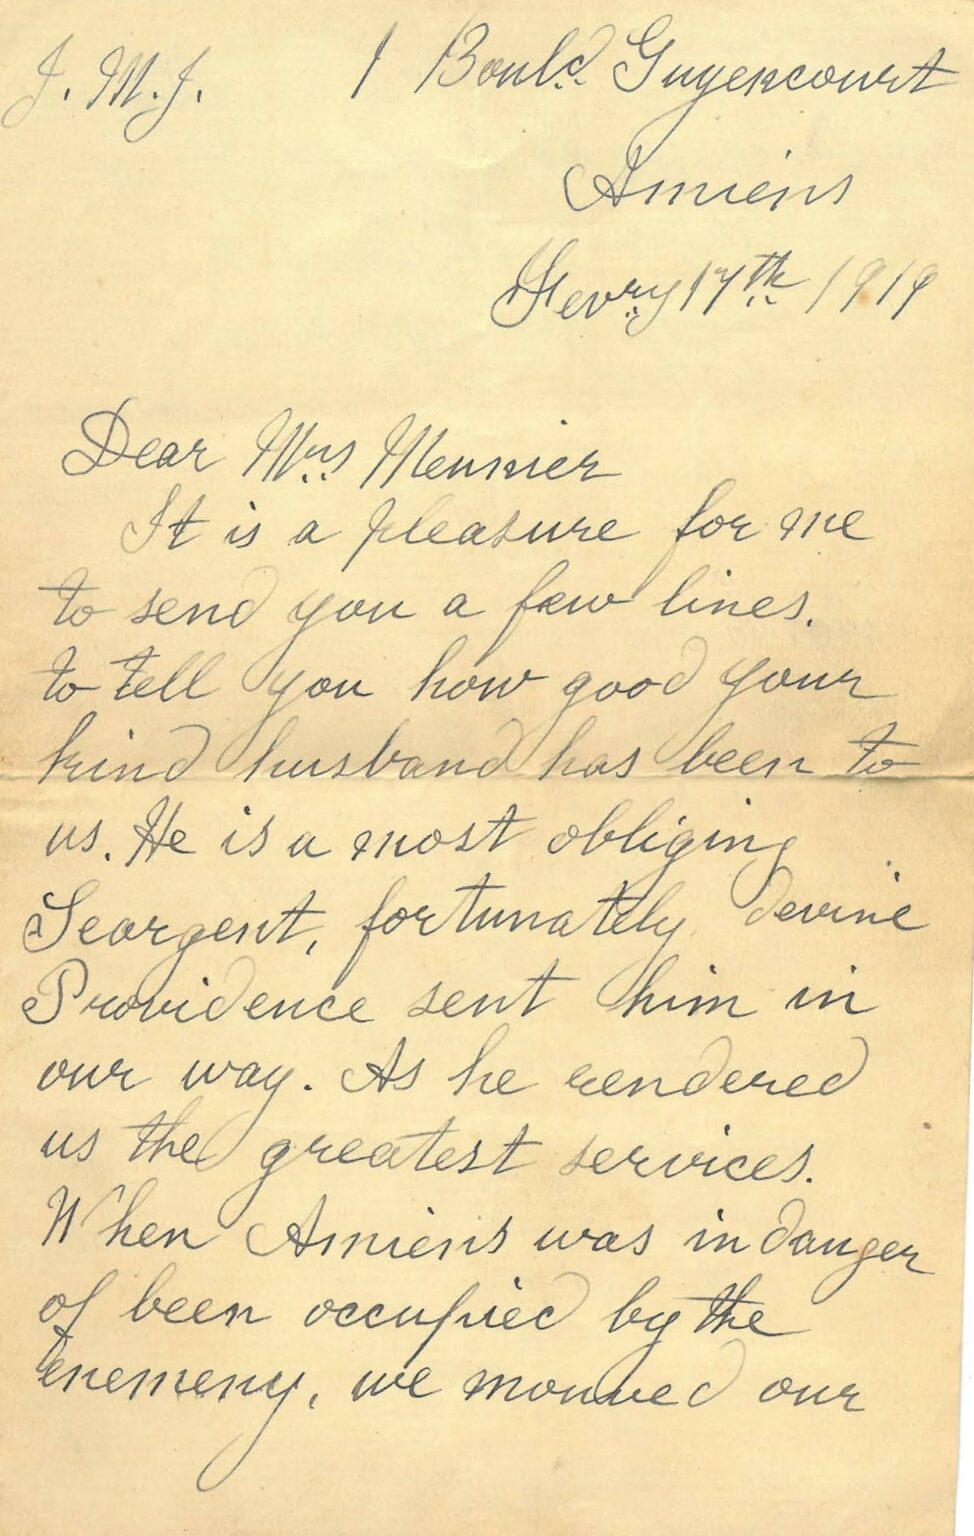 J. M. J. 1 Boulᵈ. Guyencourt
Amiens
Fevʳʸ 17ᵗʰ 1919
Dear Mʳˢ Meunier
It is a pleasure for me
to send you a few lines.
to tell you how good your
kind husband has been to
us. He is a most obliging
Seargent, fortunately devine
Providence sent him in
our way. As he rendered
us the greatest services.
When Amiens was in danger
of been occupied by the
enemeny, we mouved our